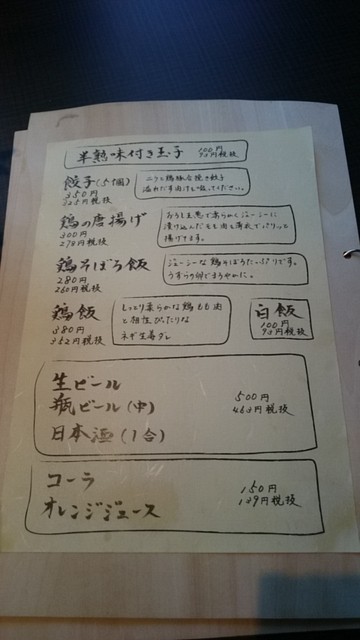 半熟味付き玉子 100円
93円税抜
餃子(5個)
350円
325円税抜
ニラと鶏豚合挽き餃子
溢れだす肉汁も吸ってください。
鶏の唐揚げ
300円
278円税抜
おろし生姜で柔らかくジューシーに
漬け込んだもも肉を薄衣でパリッと
揚げてます。
鶏そぼろ飯
280円
260円税抜
ジューシーな鶏そぼろたっぷりです。
うずらの卵でまろやかに。
鶏飯
380円
352円税抜
しっとり柔らかな鶏もも肉
と相性ぴったりな
ネギ生姜ダレ
白飯
100円
93円税抜
生ビール
瓶ビール(中)
日本酒(1合)
500円
463円税抜
コーラ
オレンジジュース
150円
139円税抜